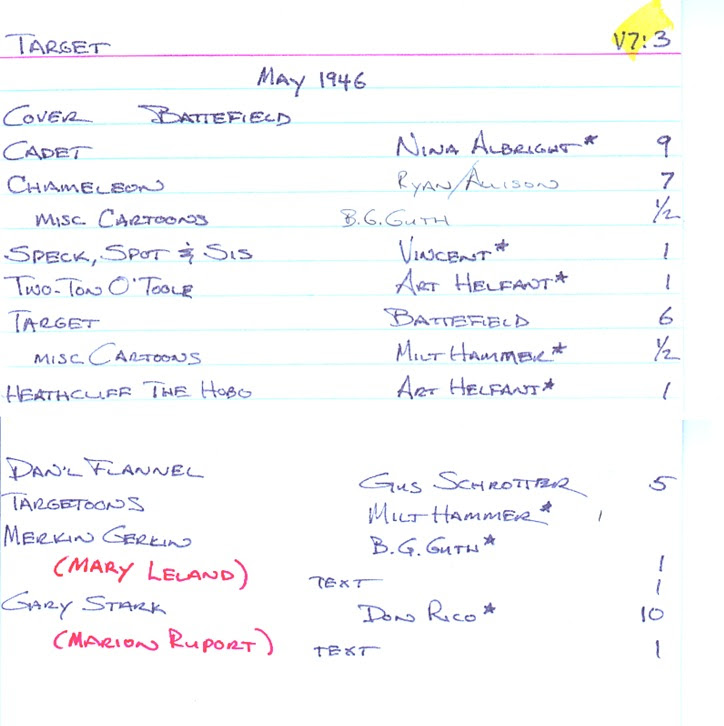 TARGET V7:3
MAY 1946
COVER BATTEFIELD
CADET NINA ALBRIGHT* 9
CHAMELEON RYAN/ALLISON 7
MISC CARTOONS B.G.GUTH 1/2
SPECK, SPOT & SIS VINCENT* 1
TWO-TON O'TOOLE ART HELFANT* 1
TARGET BATTEFIELD 6
MISC CARTOONS MILT HAMMER* 1/2
HEATHCLIFF THE HOBO ART HELFANT* 1
DAN'L FLANNEL GUS SCHROTTER 5
TARGETOONS MILT HAMMER* 1
MERKIN GERKIN B.G. GUTH* 1
(MARY LELAND) TEXT 1
GARY STARK DON RICO* 10
(MARION RUPORT) TEXT 1